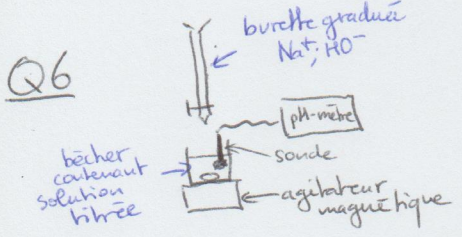 burette graduée
Na⁺; HO⁻
Q6
pH-mètre
bêcher
contenant
solution
titrée
sonde
agitateur
magnétique